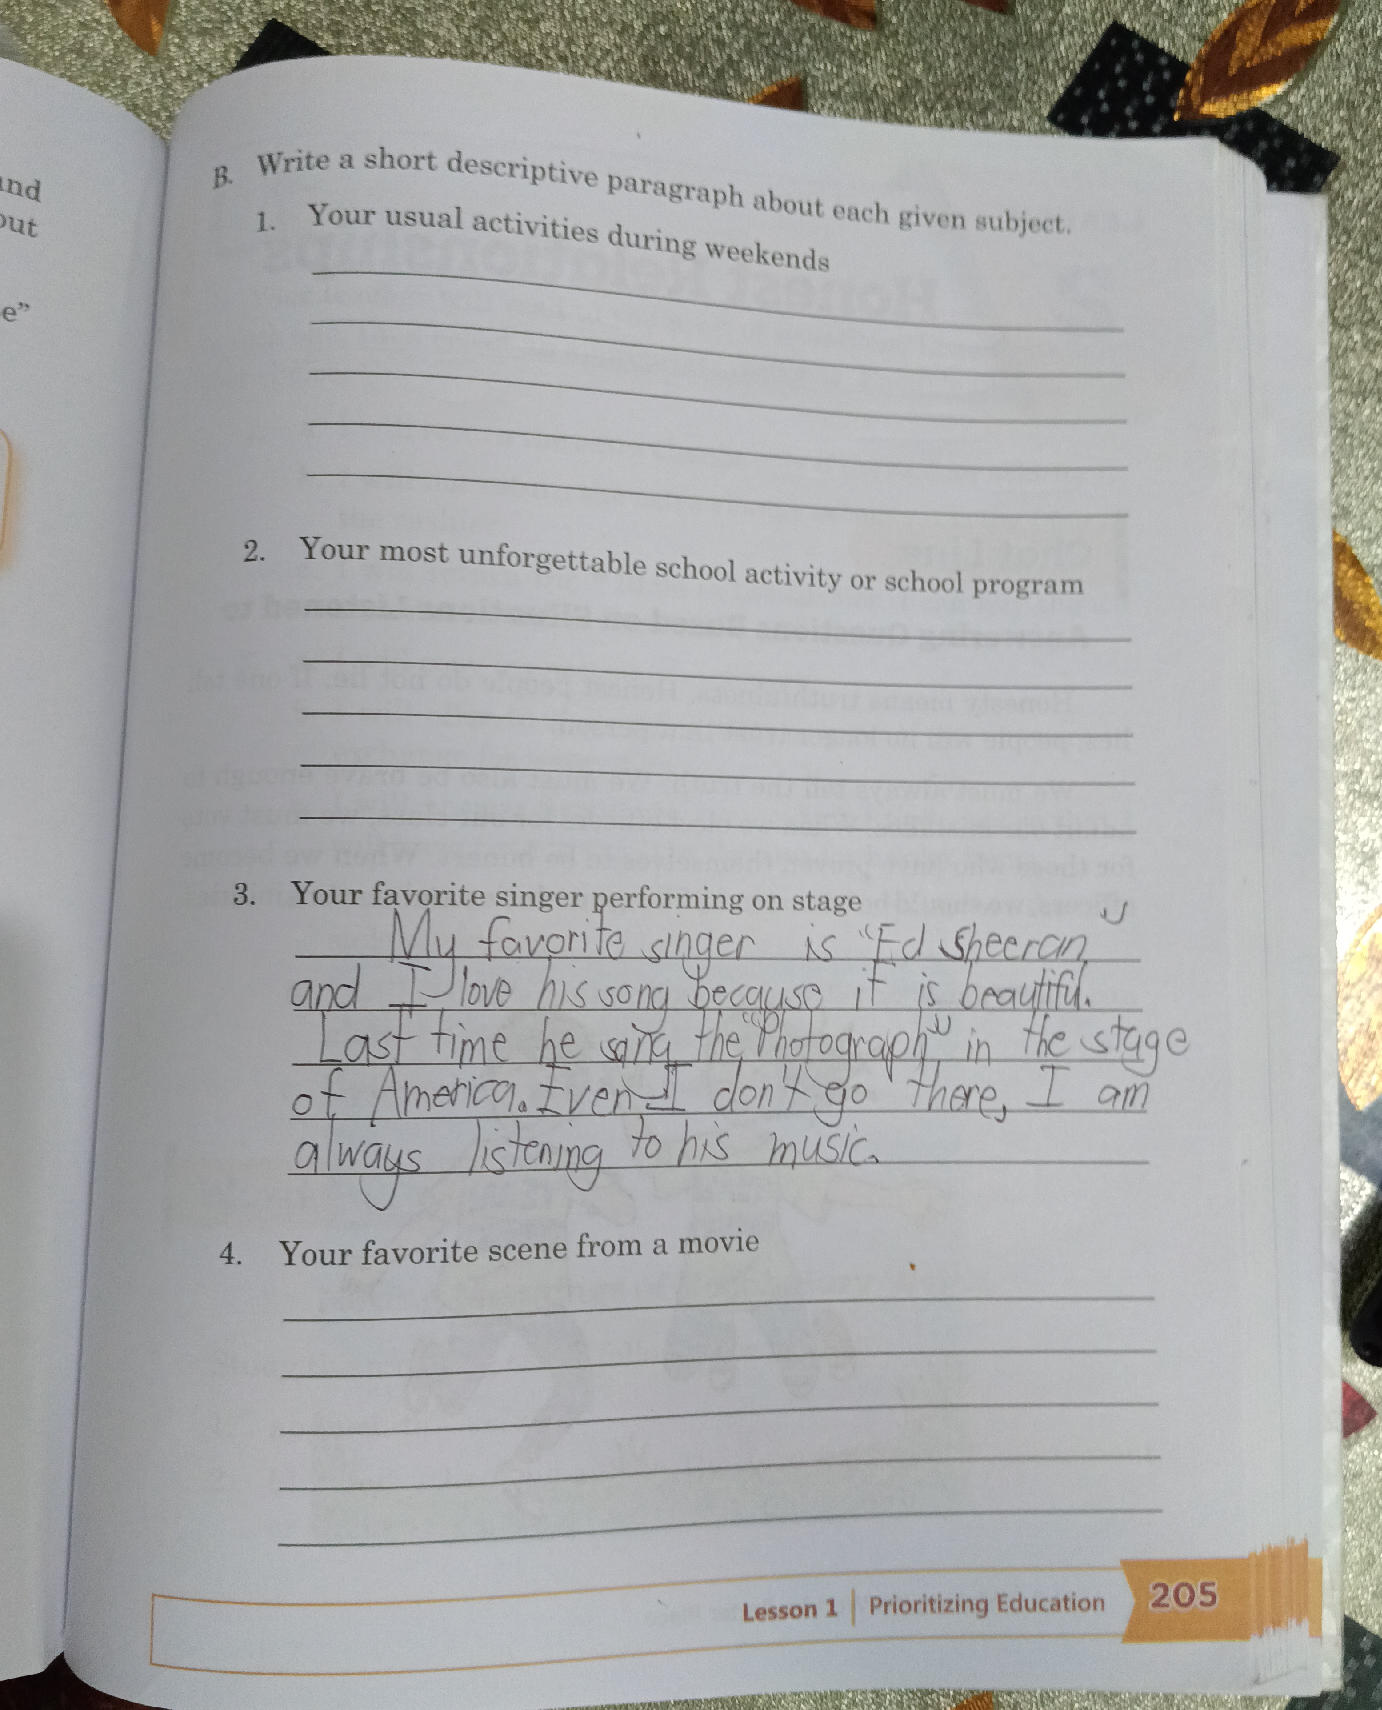 nd
out
e”
B. Write a short descriptive paragraph about each given subject.
1. Your usual activities during weekends
2. Your most unforgettable school activity or school program
3. Your favorite singer performing on stage
My favorite singer is "Ed Sheeran"
and I love his song because it is beautiful.
Last time he sang the "Photograph" in the stage
of America. Even I don't go there, I am
always listening to his music.
4. Your favorite scene from a movie
Lesson 1 | Prioritizing Education 205